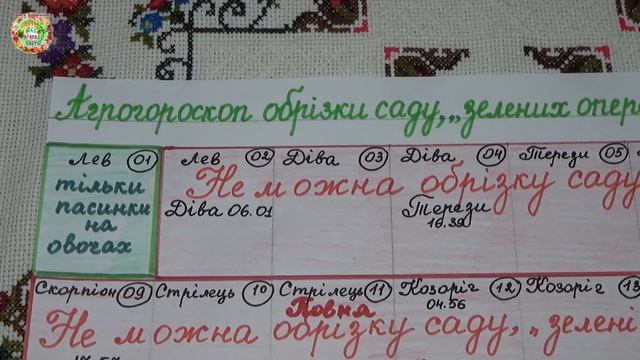 Агрогороскоп обрізки саду, „зелених опер
Лев 01 Лев 02 Діва 03 Діва 04 Терези 05
тільки пасинки на овочах
Не можна обрізку саду
Діва 06.01 Терези 16.39
Скорпіон 09 Стрілець 10 Стрілець 11 Козоріг 12 Козоріг 13
Повня 04.56
Не можна обрізку саду, „зелені